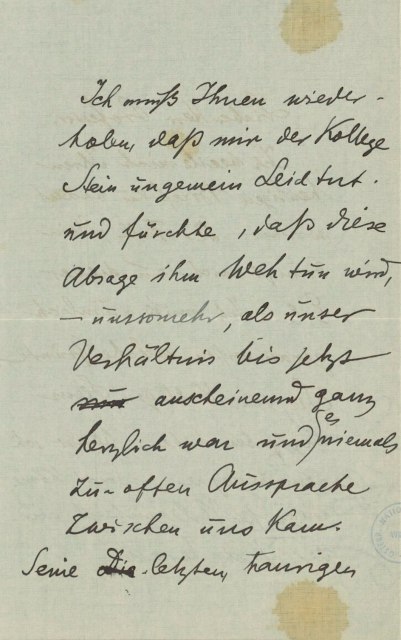 Ich muß Ihnen wieder-
holen, daß mir der Kollege
Stein ungemein Leid tut.
und fürchte, daß diese
Absage ihm Weh tun wird,
– umsomehr, als unser
Verhältnis bis jetzt
nur anscheinend ganz
herzlich war und es niemals
zu offen Aussprache
zwischen uns kam.
Seine Die letzten, traurigen